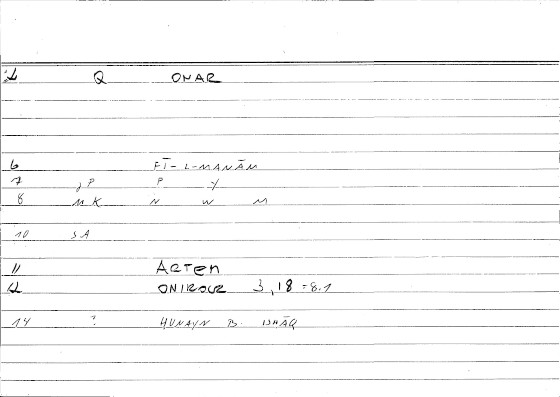 2 Q ONAR
6 FĪ-L-MANĀM
7 JP P Y
8 MK N W M
10 SA
11 ARTEM
12 ONIROCR 3,18 = 8.1
14 ? HUNAYN B. ISHĀQ